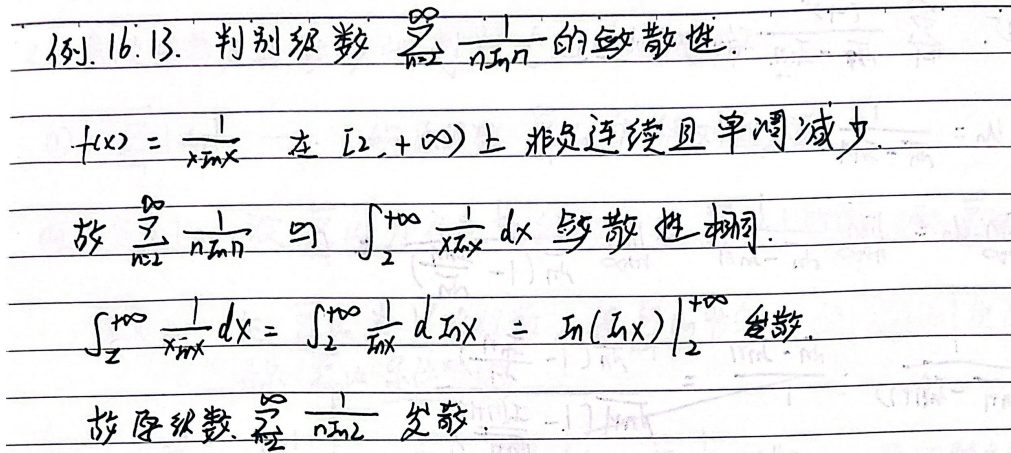 例.16.13. 判别级数 $\sum_{n=2}^{\infty} \frac{1}{n \ln n}$ 的敛散性.
$f(x) = \frac{1}{x \ln x}$ 在 $[2, +\infty)$ 上 非负连续且单调减少.
故 $\sum_{n=2}^{\infty} \frac{1}{n \ln n}$ 与 $\int_{2}^{+\infty} \frac{1}{x \ln x} dx$ 敛散性相同.
$\int_{2}^{+\infty} \frac{1}{x \ln x} dx = \int_{2}^{+\infty} \frac{1}{\ln x} d \ln x = \ln(\ln x) \Big|_{2}^{+\infty}$ 发散.
故原级数 $\sum_{n=2}^{\infty} \frac{1}{n \ln 2}$ 发散.